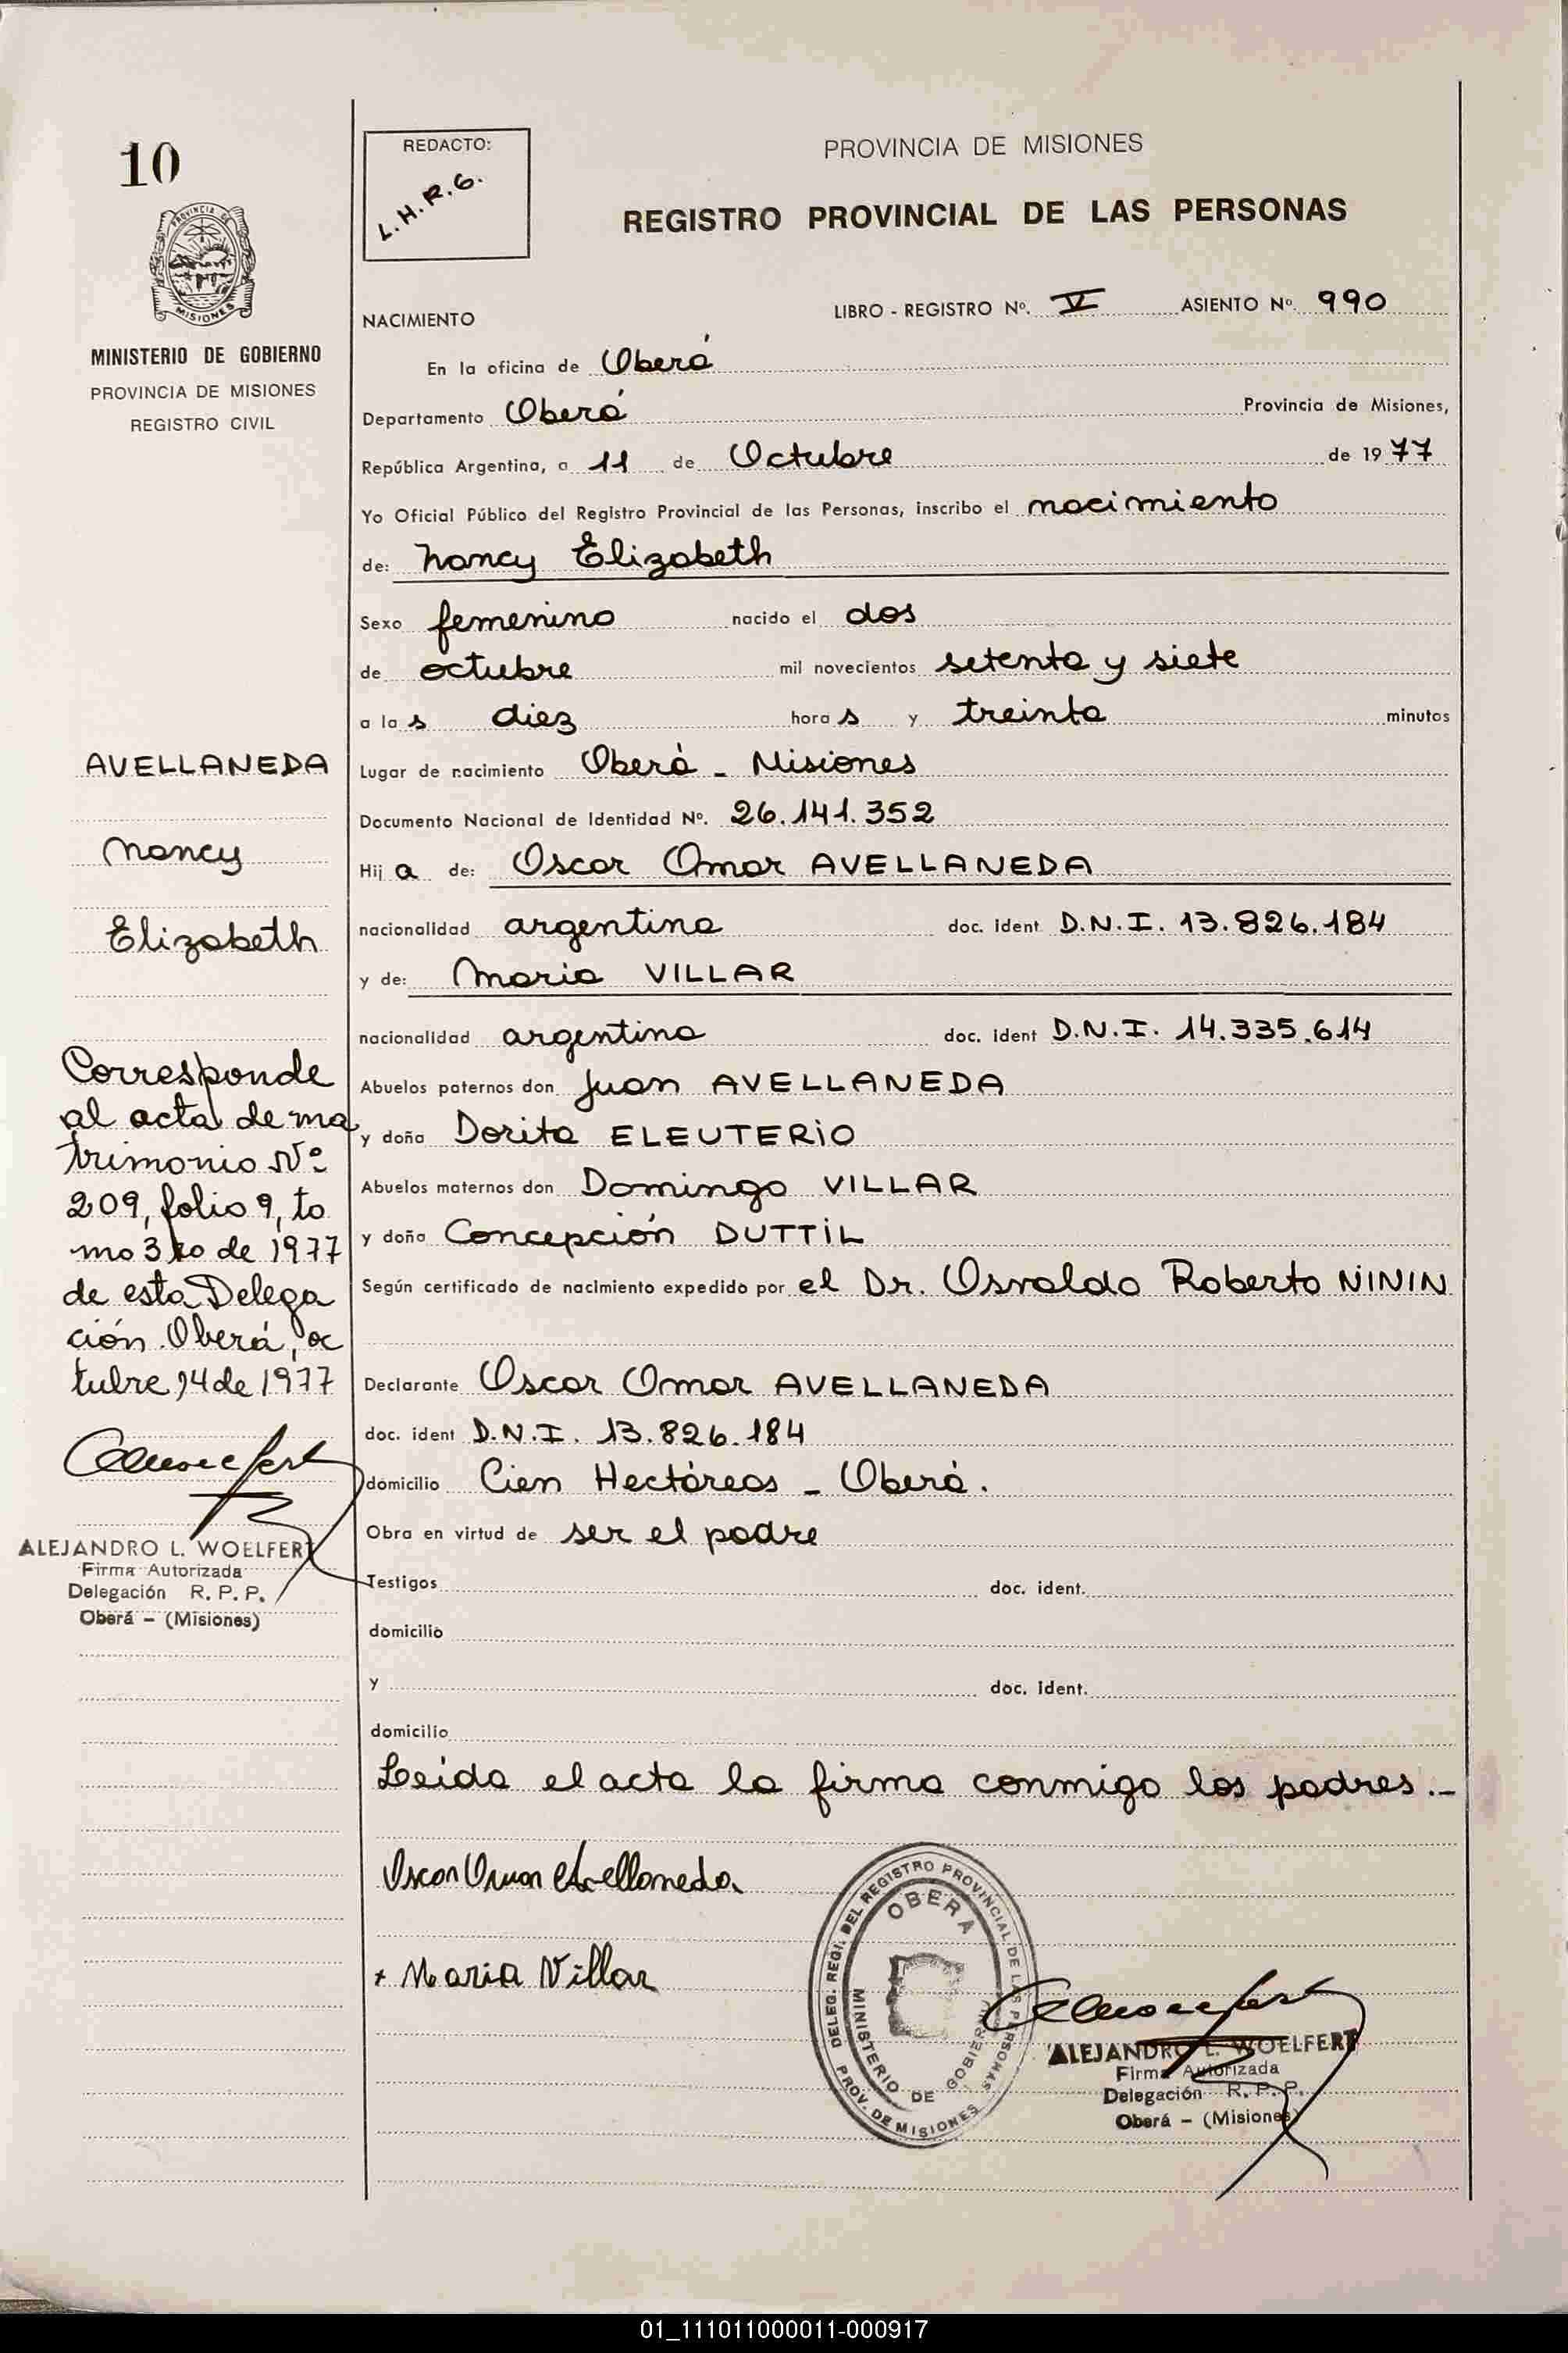 10
REDACTO:
L.H.R.G.
PROVINCIA DE MISIONES
REGISTRO PROVINCIAL DE LAS PERSONAS
PROVINCIA DE
MISIONES
MINISTERIO DE GOBIERNO
PROVINCIA DE MISIONES
REGISTRO CIVIL
NACIMIENTO
LIBRO - REGISTRO Nº. V ASIENTO Nº. 990
En la oficina de Oberá
Departamento Oberá Provincia de Misiones,
República Argentina, a 11 de Octubre de 1977
Yo Oficial Público del Registro Provincial de las Personas, inscribo el nacimiento
de: Nancy Elizabeth
Sexo femenino nacido el dos
de octubre mil novecientos setenta y siete
a las diez horas y treinta minutos
Lugar de nacimiento Oberá - Misiones
Documento Nacional de Identidad Nº. 26.141.352
Hija de: Oscar Omar AVELLANEDA
nacionalidad argentina doc. ident D.N.I. 13.826.184
y de: Maria VILLAR
nacionalidad argentina doc. ident D.N.I. 14.335.614
Abuelos paternos don Juan AVELLANEDA
y doña Dorita ELEUTERIO
Abuelos maternos don Domingo VILLAR
y doña Concepción DUTTIL
Según certificado de nacimiento expedido por el Dr. Osvaldo Roberto NININ
Declarante Oscar Omar AVELLANEDA
doc. ident D.N.I. 13.826.184
domicilio Cien Hectáreas - Oberá.
Obra en virtud de ser el padre
Testigos doc. ident.
domicilio
y doc. ident.
domicilio
Leida el acta la firma conmigo los padres.-
Oscar Omar Avellaneda
+ Maria Villar
DELEG. REGI. DEL REGISTRO PROVINCIAL DE LAS PERSONAS
PROV. DE MISIONES
OBERA
MINISTERIO DE GOBIERNO
ALEJANDRO L. WOELFERT
Firma Autorizada
Delegación R. P. P.
Oberá - (Misiones)
AVELLANEDA
Nancy
Elizabeth
Corresponde
al acta de ma
trimonio Nº
209, folio 9, to
mo 3ro de 1977
de esta Delega
ción. Oberá, oc
tubre 14 de 1977
ALEJANDRO L. WOELFERT
Firma Autorizada
Delegación R. P. P.
Oberá - (Misiones)
01_111011000011-000917